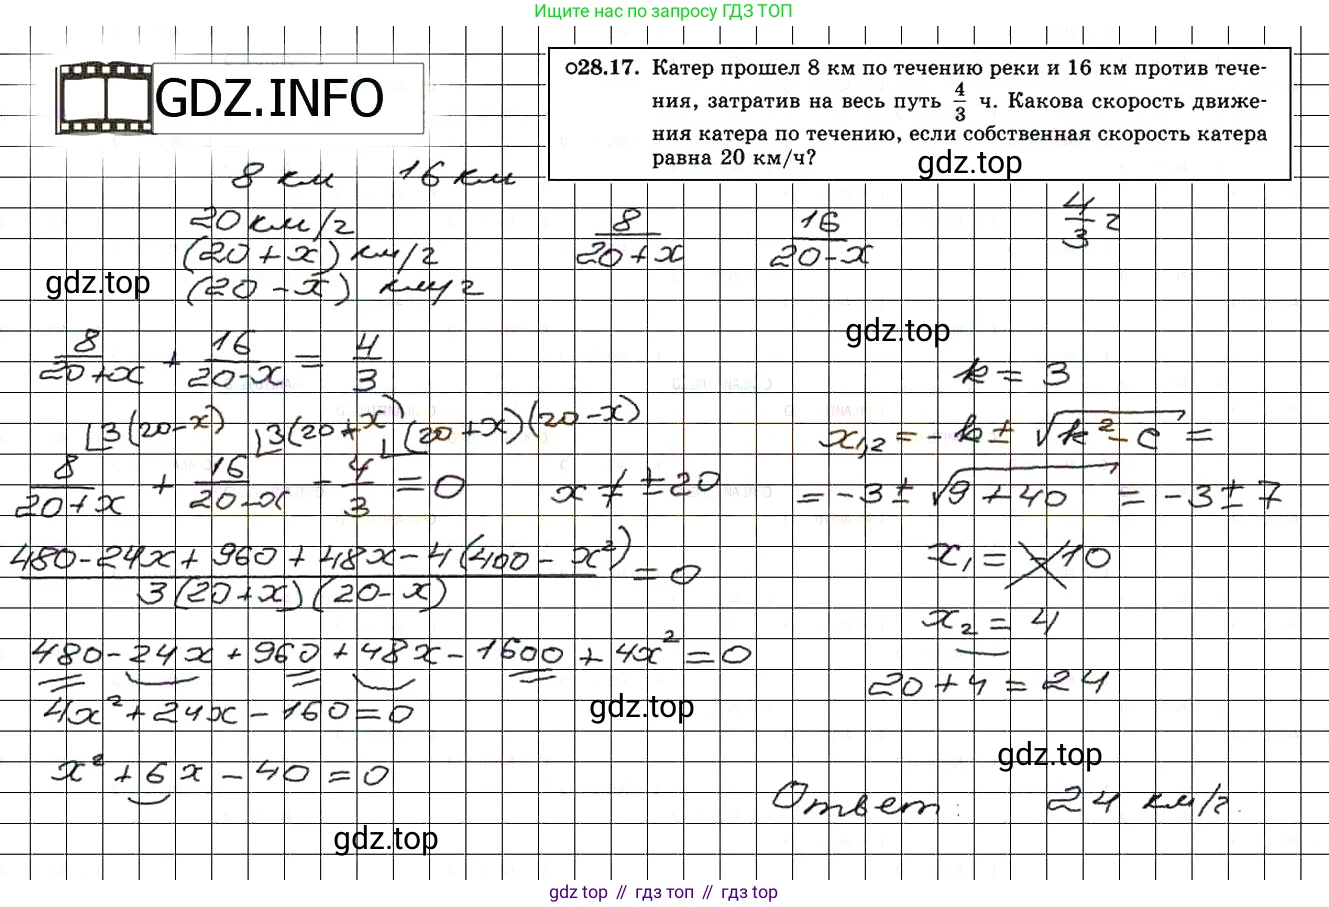 Ищите нас по запросу ГДЗ ТОП
GDZ.INFO
○28.17. Катер прошел 8 км по течению реки и 16 км против тече-
ния, затратив на весь путь 4/3 ч. Какова скорость движе-
ния катера по течению, если собственная скорость катера
равна 20 км/ч?
gdz.top
8 км 16 км
20 км/ч
(20 + x) км/ч
(20 - x) км/ч
8/(20+x) 16/(20-x) 4/3 ч
gdz.top
gdz.top
8/(20+x) + 16/(20-x) = 4/3
3(20-x) 3(20+x) (20+x)(20-x)
8/(20+x) + 16/(20-x) - 4/3 = 0 x ≠ ±20
(480-24x+960+48x-4(400-x²))/(3(20+x)(20-x)) = 0
480-24x+960+48x-1600+4x²=0
4x²+24x-160=0
x²+6x-40=0
gdz.top
gdz.top
k = 3
x₁,₂ = -k ± √(k²-c) =
= -3 ± √(9+40) = -3 ± 7
x₁ = -10
x₂ = 4
20+4 = 24
gdz.top
Ответ: 24 км/ч.
gdz top // гдз топ // гдз top